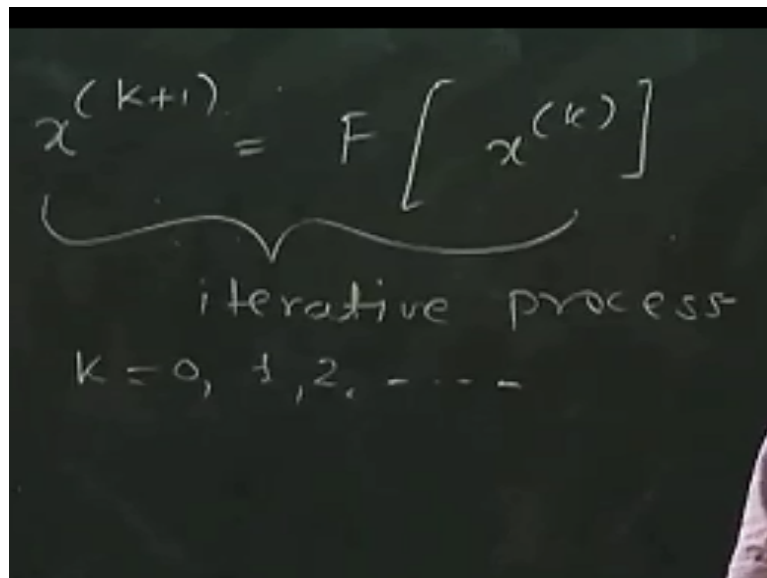 x^(k+1) = F[x^(k)]
iterative process
k = 0, 1, 2, - - - -